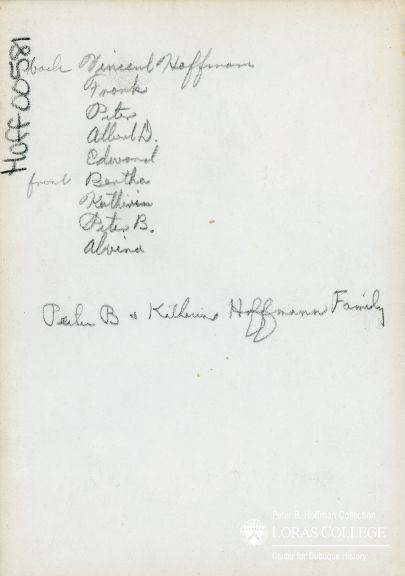 Hoff00581
back Vincent Hoffmann
Frank
Peter
Albert D.
Edward
front Bertha
Katherine
Peter B.
Alvina
Peter B & Katherine Hoffmann Family
Peter B. Hoffman Collection
LORAS COLLEGE
Center for Dubuque History